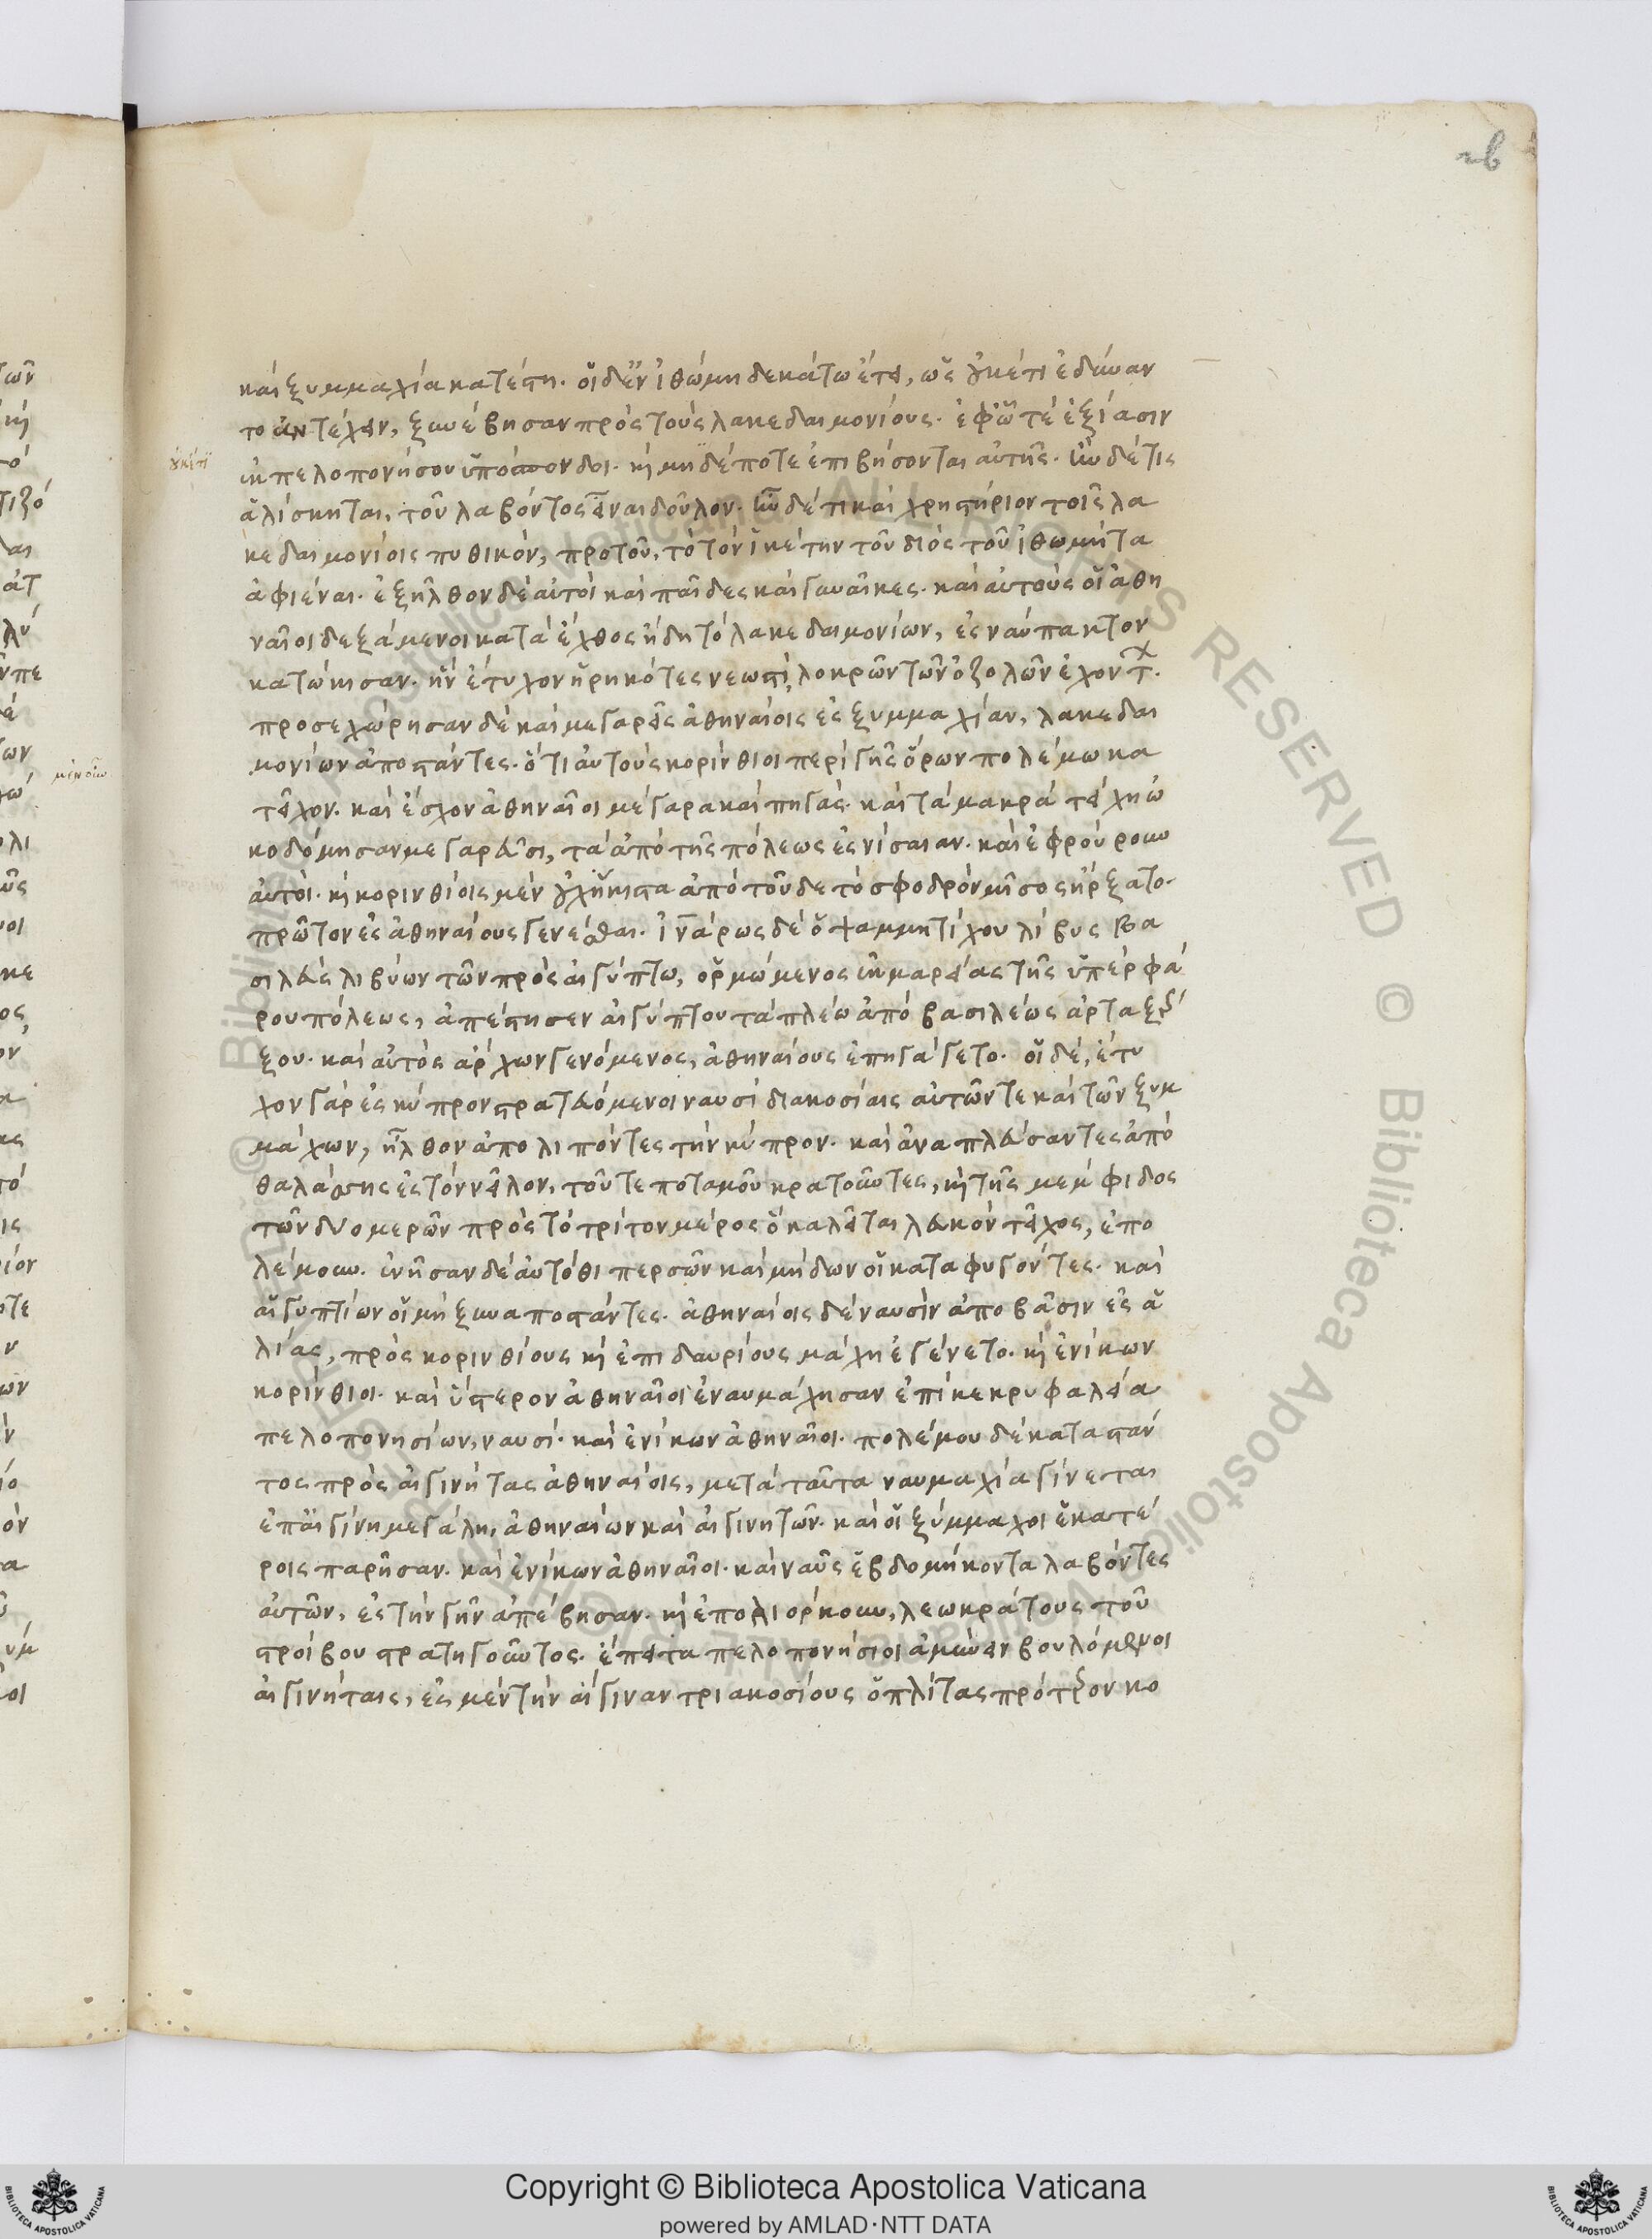 καὶ ξυμμαχία κατέστη. οἱ δ' ἐν ἰθώμη δεκάτω ἔτει, ὡς οὐκέτι ἐδύναν
το ἀντέχειν, ξυνέβησαν πρὸς τοὺς λακεδαιμονίους. ἐφ' ὧ τὲ ἐξίασιν
ἐκ πελοπονήσου ὑπόσπονδοι. καὶ μηδέποτε ἐπιβήσονται αὐτῆς. ἢν δέ τις
ἁλίσκηται, τοῦ λαβόντος εἶναι δοῦλον. ἦν δέ τι καὶ χρηστήριον τοῖς λα
κεδαιμονίοις πυθικὸν, προτοῦ, τὸ τὸν ἱκέτην τοῦ διὸς τοῦ ἰθωμήτα
ἀφιέναι. ἐξῆλθον δὲ αὐτοὶ καὶ παῖδες καὶ γυναῖκες. καὶ αὐτοὺς οἱ ἀθη
ναῖοι δεξάμενοι κατὰ ἔχθος ἤδη τὸ λακεδαιμονίων, ἐς ναύπακτον
κατώκισαν. ἣν ἔτυχον ἡρηκότες νεωστὶ, λοκρῶν τῶν ὀζολῶν ἐχόντ.
προσεχώρησαν δὲ καὶ μεγαρεῖς ἀθηναίοις ἐς ξυμμαχίαν, λακεδαι
μονίων ἀποστάντες. ὅτι αὐτοὺς κορίνθιοι περὶ γῆς ὅρων πολέμω κα
τεῖχον. καὶ ἔσχον ἀθηναῖοι μέγαρα καὶ πηγάς. καὶ τὰ μακρὰ τείχη ὠ
κοδόμησαν μεγαρεῦσι, τὰ ἀπὸ τῆς πόλεως ἐς νίσαιαν. καὶ ἐφρούρουν
αὐτοί. καὶ κορινθίοις μὲν οὐχ ἥκιστα ἀπὸ τοῦδε τὸ σφοδρὸν μῖσος ἤρξατο.
πρῶτον ἐς ἀθηναίους γενέσθαι. ἰνάρως δὲ ὁ ψαμμητίχου λίβυς βα
σιλεὺς λιβύων τῶν πρὸς αἰγύπτω, ὁρμώμενος ἐκ μαρείας τῆς ὑπὲρ φά
ρου πόλεως, ἀπέστησεν αἰγύπτου τὰ πλέω ἀπὸ βασιλέως ἀρταξέρ
ξου. καὶ αὐτὸς ἄρχων γενόμενος, ἀθηναίους ἐπηγάγετο. οἱ δὲ, ἔτυ
χον γὰρ ἐς κύπρον στρατευόμενοι ναυσὶ διακοσίαις αὐτῶν τε καὶ τῶν ξυμ
μάχων, ἦλθον ἀπολιπόντες τὴν κύπρον. καὶ ἀναπλεύσαντες ἀπὸ
θαλάσσης ἐς τὸν νεῖλον, τοῦ τε ποταμοῦ κρατοῦντες, καὶ τῆς μέμφιδος
τῶν δύο μερῶν πρὸς τὸ τρίτον μέρος ὃ καλεῖται λευκὸν τεῖχος, ἐπο
λέμουν. ἐνῆσαν δὲ αὐτόθι περσῶν καὶ μήδων οἱ καταφυγόντες. καὶ
αἰγυπτίων οἱ μὴ ξυναποστάντες. ἀθηναίοις δὲ ναυσὶν ἀποβᾶσιν ἐς ἁ
λιάς, πρὸς κορινθίους καὶ ἐπιδαυρίους μάχη ἐγένετο. καὶ ἐνίκων
κορίνθιοι. καὶ ὕστερον ἀθηναῖοι ἐναυμάχησαν ἐπὶ κεκρυφαλεία
πελοπονησίων, ναυσί. καὶ ἐνίκων ἀθηναῖοι. πολέμου δὲ καταστάν
τος πρὸς αἰγινήτας ἀθηναίοις, μετὰ ταῦτα ναυμαχία γίνεται
ἐπ' αἰγίνη μεγάλη, ἀθηναίων καὶ αἰγινητῶν. καὶ οἱ ξύμμαχοι ἑκατέ
ροις παρῆσαν. καὶ ἐνίκων ἀθηναῖοι. καὶ ναῦς ἑβδομήκοντα λαβόντες
αὐτῶν, ἐς τὴν γῆν ἀπέβησαν. καὶ ἐπολιόρκουν, λεωκράτους τοῦ
στροίβου στρατηγοῦντος. ἔπειτα πελοπονήσιοι ἀμύνειν βουλόμενοι
αἰγινήταις, ἐς μὲν τὴν αἴγιναν τριακοσίους ὁπλίτας πρότερον κο
οὐκέτι
Copyright © Biblioteca Apostolica Vaticana
powered by AMLAD·NTT DATA